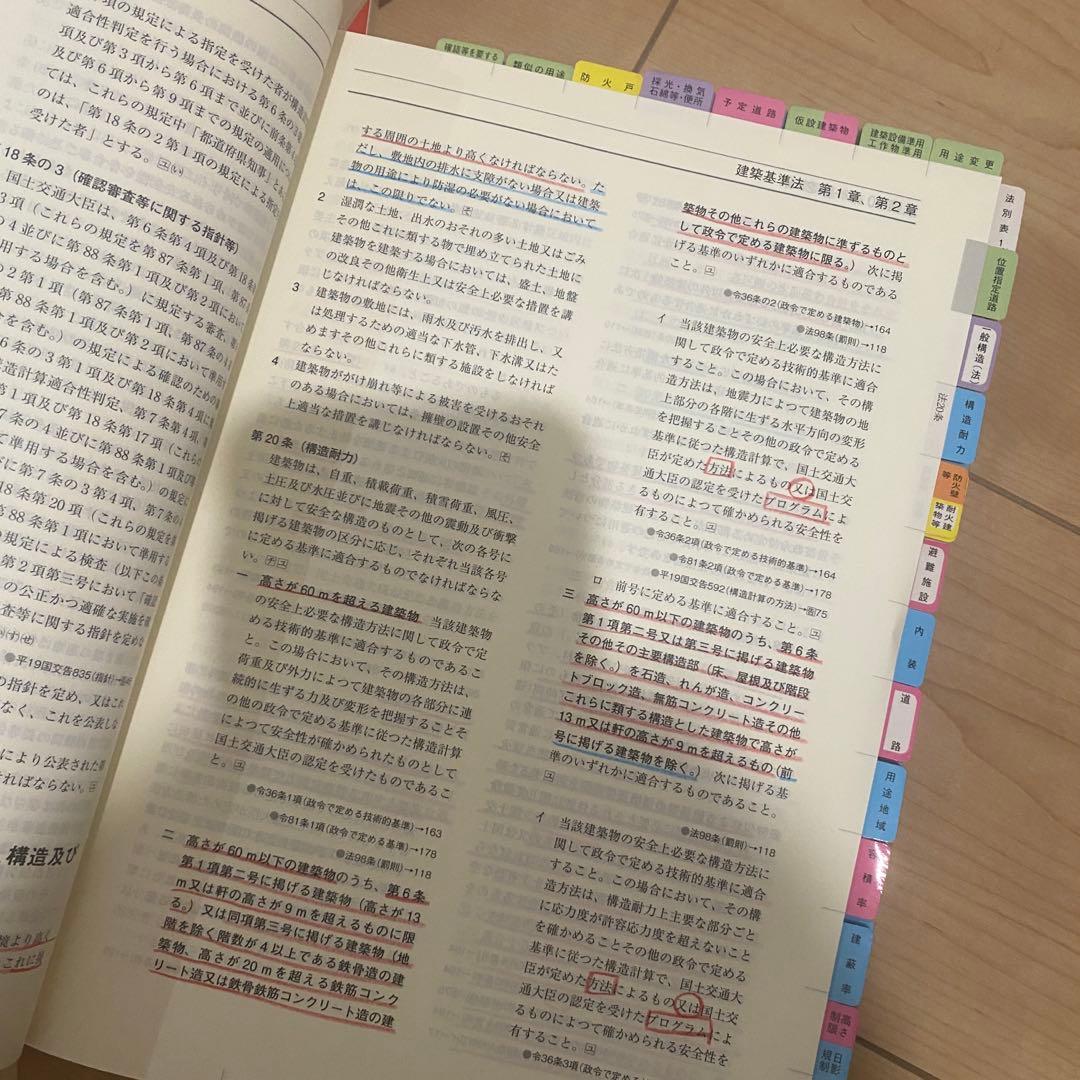 項の規定による指定を受けた者が構造
適合性判定を行う場合における第6条の3
項及び第3項から第6項まで並びに前条第
及び第6項から第9項までの規定の適用につ
ては、これらの規定中「都道府県知事」とあ
のは、「第18条の2第1項の規定による指定
受けた者」とする。
18条の3(確認審査等に関する指針等)
国土交通大臣は、第6条第4項及び第18条
3項(これらの規定を第87条第1項、第87
の4並びに第88条第1項及び第2項において
用する場合を含む。)に規定する審査、第
の2第1項(第87条第1項、第87条の4
第88条第1項及び第2項において準用
を含む。)の規定による確認のための
の6の3第1項及び第18条第4項に
構造計算適合性判定、第7条第4項
第1項及び第18条第17項(これらの
第87条の4並びに第88条第1項及び第
て準用する場合を含む。)の規定に
びに第7条の3第4項、第7条の4
18条第20項(これらの規定を
88条第1項において準用する
の規定による検査(以下この条
第2項第三号において「確認
の公正かつ適確な実施を確
査等に関する指針を定めな
●平19国交告835(指針)→
の指針を定め、又はこれ
なく、これを公表しな
により公表された第
なければならない。
構造及び
確認等を要する
類似の用途
防火戸
採光・換気
石綿等・便所
予定道路
仮設建築物
建築設備準用
工作物準用
用途変更
建築基準法 第1章、第2章
する周囲の土地より高くなければならない。た
だし、敷地内の排水に支障がない場合又は建築
物の用途により防湿の必要がない場合において
は、この限りでない。
2 湿潤な土地、出水のおそれの多い土地又はごみ
その他これに類する物で埋め立てられた土地に
建築物を建築する場合においては、盛土、地盤
の改良その他衛生上又は安全上必要な措置を講
じなければならない。
3 建築物の敷地には、雨水及び汚水を排出し、又
は処理するための適当な下水管、下水溝又はた
めますその他これらに類する施設をしなければ
ならない。
4 建築物ががけ崩れ等による被害を受けるおそれ
のある場合においては、擁壁の設置その他安全
上適当な措置を講じなければならない。
第20条(構造耐力)
建築物は、自重、積載荷重、積雪荷重、風圧、
土圧及び水圧並びに地震その他の震動及び衝撃
に対して安全な構造のものとして、次の各号に
掲げる建築物の区分に応じ、それぞれ当該各号
に定める基準に適合するものでなければならな
い。
一 高さが60mを超える建築物 当該建築物
の安全上必要な構造方法に関して政令で定
める技術的基準に適合するものであるこ
と。この場合において、その構造方法は、
荷重及び外力によつて建築物の各部分に連
続的に生ずる力及び変形を把握することそ
の他の政令で定める基準に従つた構造計算
によつて安全性が確かめられたものとして
国土交通大臣の認定を受けたものであるこ
と。
●令36条1項(政令で定める技術的基準)→163
●令81条1項(政令で定める基準)→178
●法98条(罰則)→118
二 高さが60m以下の建築物のうち、第6条
第1項第二号に掲げる建築物(高さが13
m又は軒の高さが9mを超えるものに限
る。)又は同項第三号に掲げる建築物(地
階を除く階数が4以上である鉄骨造の建
築物、高さが20mを超える鉄筋コンク
リート造又は鉄骨鉄筋コンクリート造の建
築物その他これらの建築物に準ずるものと
して政令で定める建築物に限る。) 次に掲
げる基準のいずれかに適合するものである
こと。
●令36条の2(政令で定める建築物)→164
●法98条(罰則)→118
イ 当該建築物の安全上必要な構造方法に
関して政令で定める技術的基準に適合
すること。この場合において、その構
造方法は、地震力によつて建築物の地
上部分の各階に生ずる水平方向の変形
を把握することその他の政令で定める
基準に従つた構造計算で、国土交通大
臣が定めた方法によるもの又は国土交
通大臣の認定を受けたプログラムによ
るものによつて確かめられる安全性を
有すること。
●令36条2項(政令で定める技術的基準)→164
●令81条2項(政令で定める基準)→178
●平19国交告592(構造計算の方法)→告75
ロ 前号に定める基準に適合すること。
三 高さが60m以下の建築物のうち、第6条
第1項第二号又は第三号に掲げる建築物
その他その主要構造部(床、屋根及び階段
を除く。)を石造、れんが造、コンクリー
トブロック造、無筋コンクリート造その他
これらに類する構造とした建築物で高さが
13m又は軒の高さが9mを超えるもの(前
号に掲げる建築物を除く。) 次に掲げる基
準のいずれかに適合するものであること。
●法98条(罰則)→118
イ 当該建築物の安全上必要な構造方法に
関して政令で定める技術的基準に適合
すること。この場合において、その構
造方法は、構造耐力上主要な部分ごと
に応力度が許容応力度を超えないこと
を確かめることその他の政令で定める
基準に従つた構造計算で、国土交通大
臣が定めた方法によるもの又は国土交
通大臣の認定を受けたプログラムによ
るものによつて確かめられる安全性を
有すること。
●令36条3項(政令で定める
法20条
法別表1
位置指定道路
一般構造(法)
構造耐力
防火壁等
耐火建築物等
避難施設
内装
道路
用途地域
容積率
建蔽率
高さ制限
日影規制